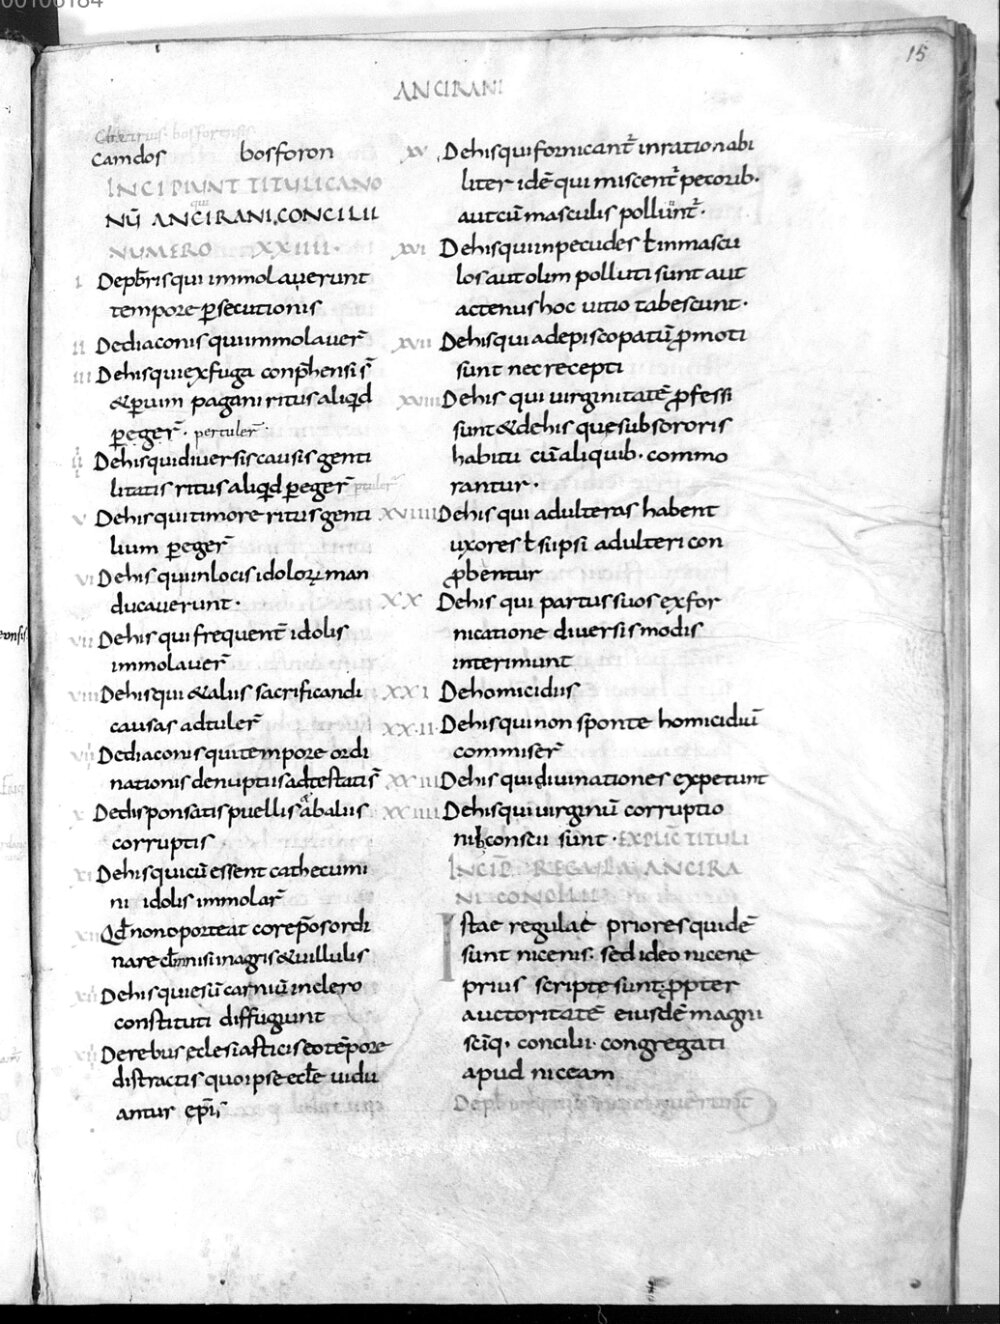 15
ANCIRANI
camdos bosforon
INCIPIUNT TITULI CANO
NŪ ANCIRANI CONCILII
NUMERO XXIIII.
I De pb̄ris qui immolauerunt
tempore ꝑsecutionis
II De diaconis qui immolauer̄
III De his qui ex fuga conp̄hensi s̄
& ꝑ uim pagani ritus aliqͥd
ꝑeger̄. pertuler̄.
De his qui diuersis causis genti
litatis ritus aliqͥd ꝑeger̄ ptuler̄
V De his qui timore ritus genti
lium ꝑeger̄
VI De his qui in locis idoloꝝ man
ducauerunt.
VII De his qui frequent̄ idolis
immolauer̄
VIII De his qui & aliis sacrificandi
causas adtuler̄
De diaconis qui tempore ordi
nationis de nuptiis adtestati s̄
X De disponsatis puellis & ab aliis
corruptis
XI De his qui cū essent cathecumi
ni idolis immolar̄
XII Qd̄ non oporteat corep̄os ordi
nare nisi in agris & uillulis
De his qui esū carniū in clero
constituti diffugiunt
De rebus eclesiasticis eo tēpore
distractis quo ipse eccle uidu
antur ep̄is
XV De his qui fornicant̄ inrationabi
liter idē qui miscent̄ pecorib.
aut cū masculis polluunt̄.
XVI De his qui in pecudes ł in mascu
los aut olim polluti sunt aut
actenus hoc uitio tabescunt.
XVII De his qui ad episcopatū ꝓmoti
sunt nec recepti
XVIII De his qui uirginitatē ꝓfessi
sunt & de his que sub sororis
habitu cū aliquib. commo
rantur.
XVIIII De his qui adulteras habent
uxores ł si ipsi adulteri con
ꝓbentur
XX De his qui partus suos ex for
nicatione diuersis modis
interimunt
XXI De homicidiis
XXII De his qui non sponte homicidiū
commiser̄
XXIII De his qui diuinationes expetunt
XXIIII De his qui uirginū corruptio
nib. conscii sunt. EXPLIC̄ TITULI
INCIP̄ REGULA ANCIRA
NI CONCILII
Istae regulae priores quidē
sunt nicenis. sed ideo nicene
prius scripte sunt ꝓpter
auctoritatē eiusdē magni
sciq̄. concilii. congregati
apud niceam